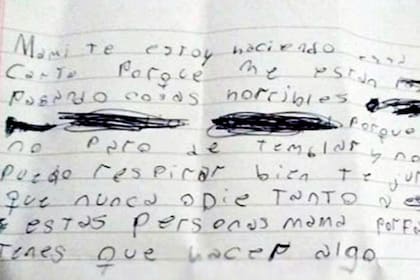 Mami te estoy haciendo esta
Carta Porque me estan
pasando cosas horribles
Porque
no paro de temblar y no
Puedo respirar bien te jur
que nunca odie tanto a es
estas personas mama porfa
Tenes que hacer algo